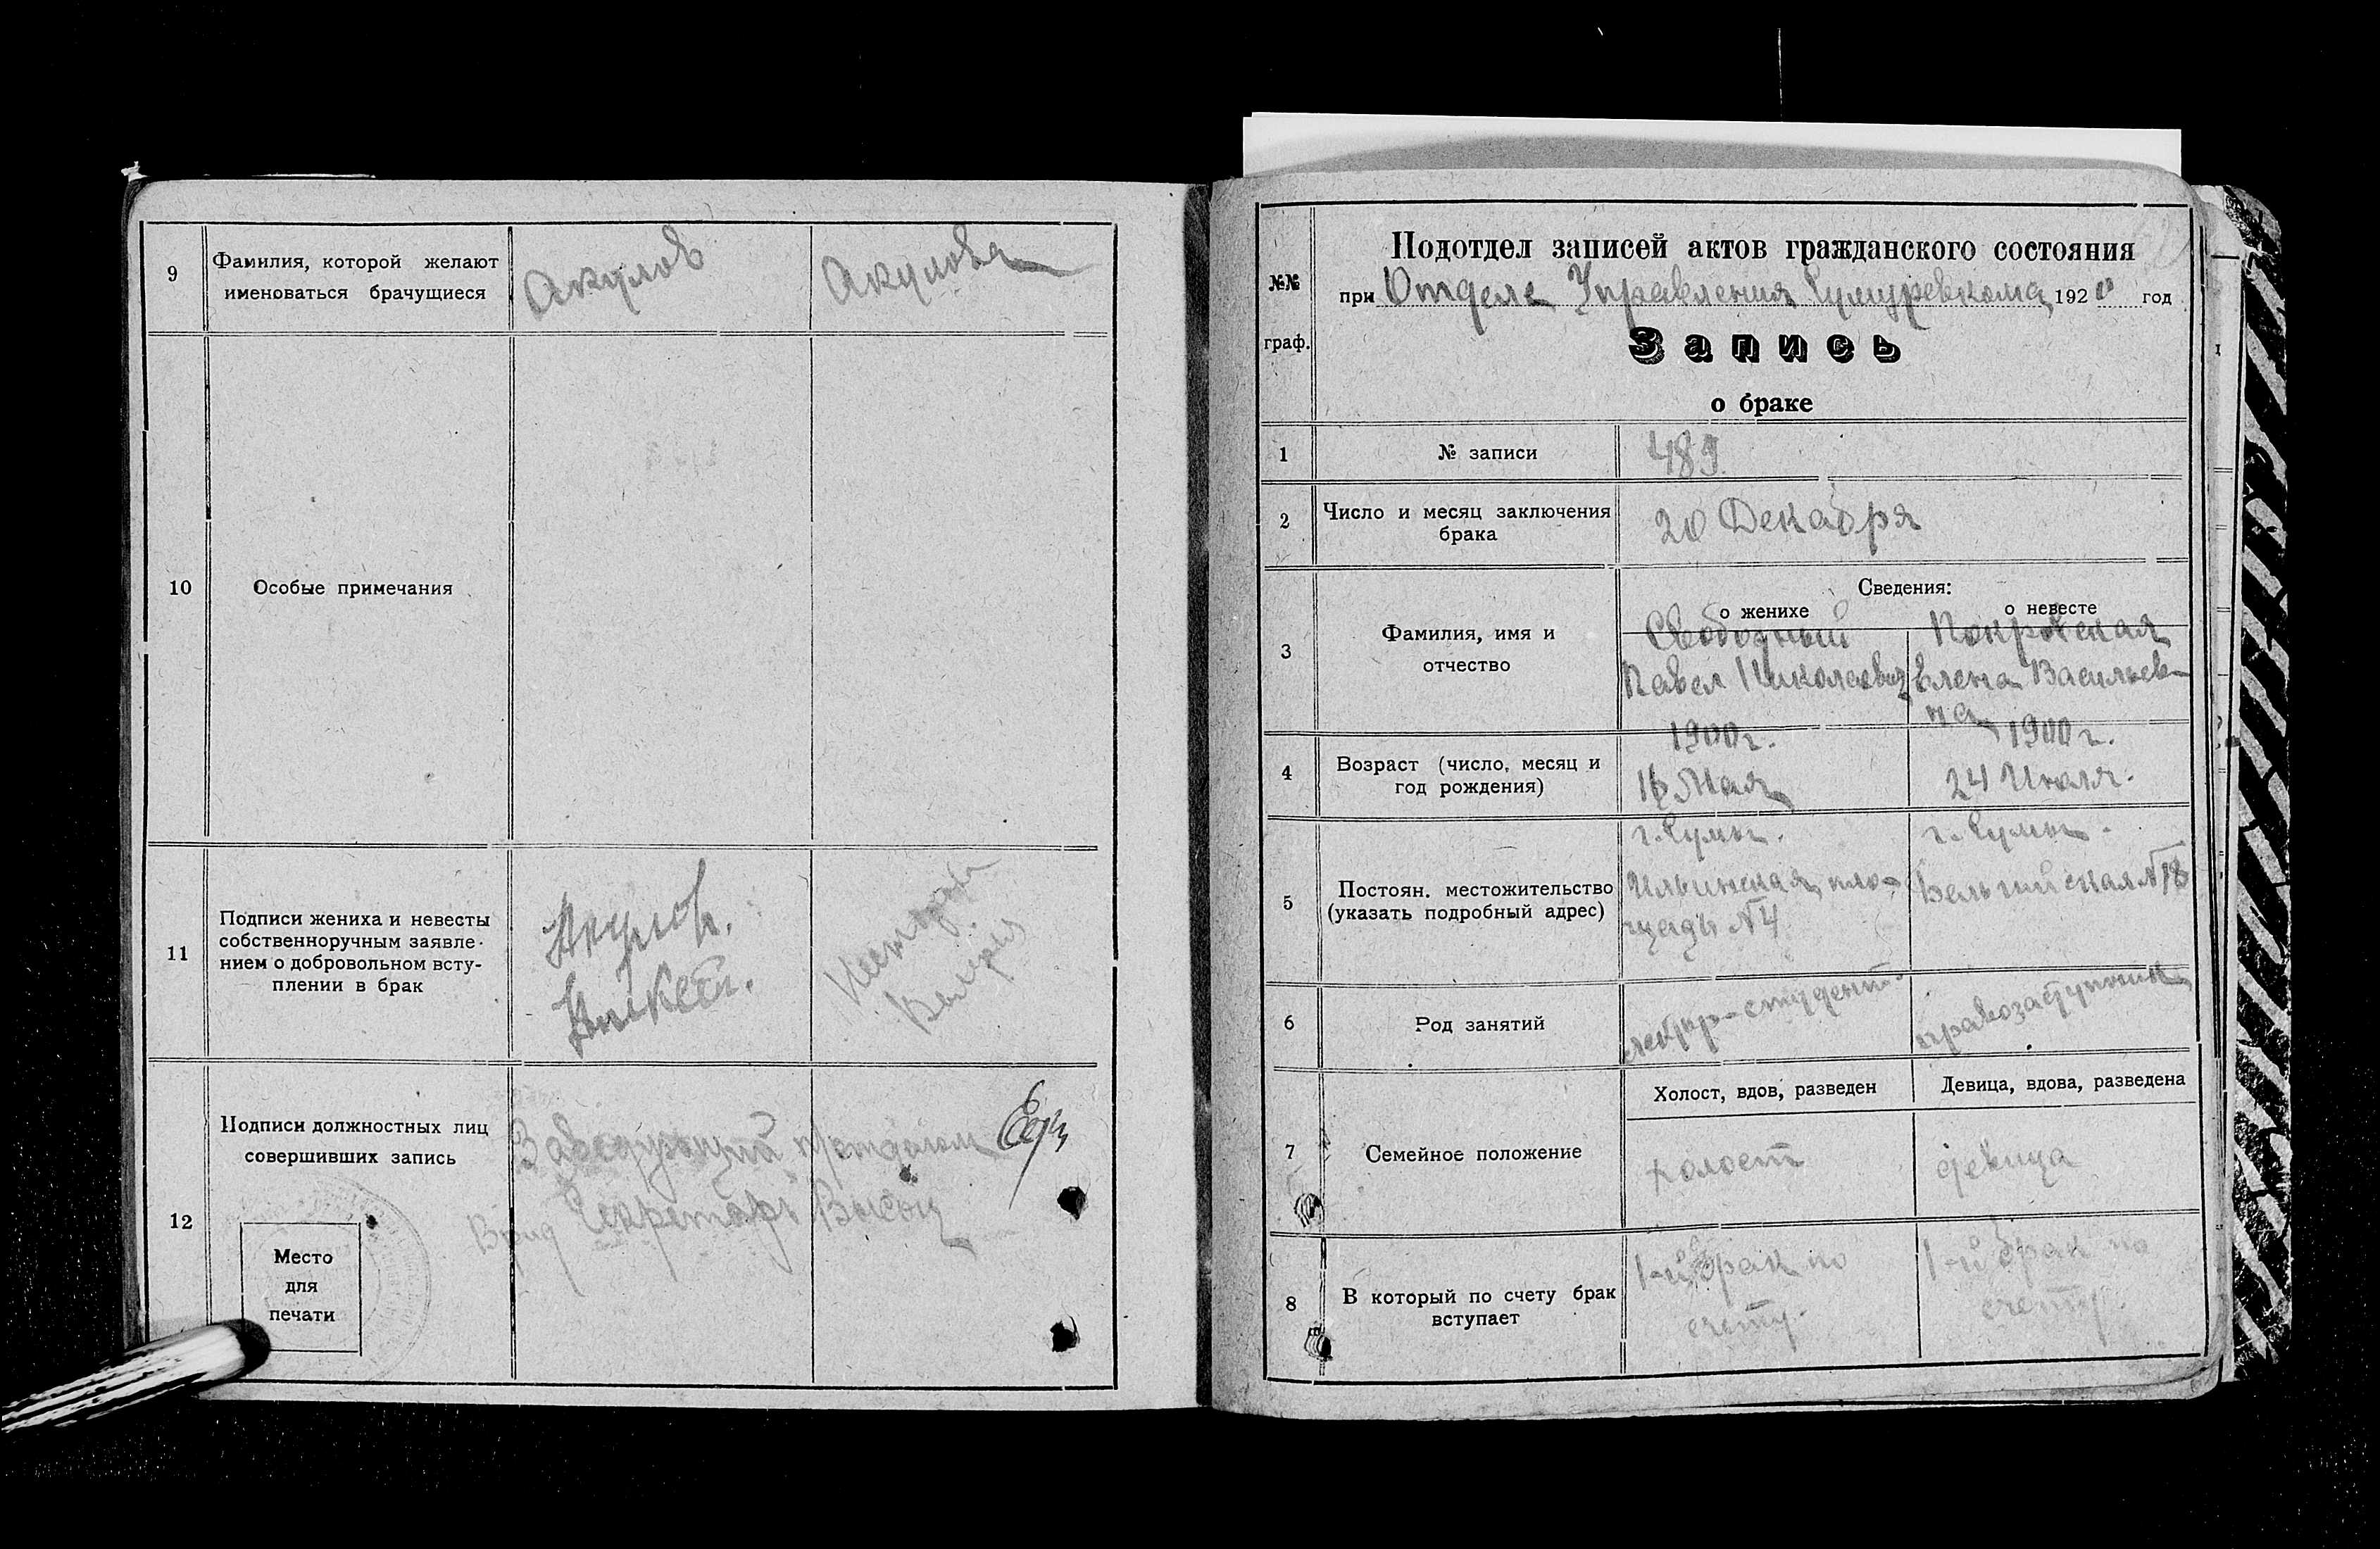 9
Фамилия, которой желают
именоваться брачущиеся
Акулов
Акулова
10
Особые примечания
11
Подписи жениха и невесты
собственноручным заявле-
нием о добровольном всту-
плении в брак
Акулов.
12
Подписи должностных лиц
совершивших запись
Заведующий п/отделом
Врид Секретарь
Место
для
печати
№№
граф.
Подотдел записей актов гражданского состояния
при Отделе Управления Сумуревкома 1920 год
Запись
о браке
1
№ записи
489
2
Число и месяц заключения
брака
20 Декабря
Сведения:
о женихе
о невесте
3
Фамилия, имя и
отчество
Свободный
Павел Николаевич
Покровская
Елена Васильев-
на
4
Возраст (число, месяц и
год рождения)
1900 г.
Мая
1900 г.
24 Июля.
5
Постоян. местожительство
(указать подробный адрес)
г. Сумы.
Ильинская пло-
щадь №4
г. Сумы.
Бельгийская №18
6
Род занятий
студент
правозаступник
7
Семейное положение
Холост, вдов, разведен
Девица, вдова, разведена
холост
девица
8
В который по счету брак
вступает
1-й брак по
счету.
1-й брак по
счету.